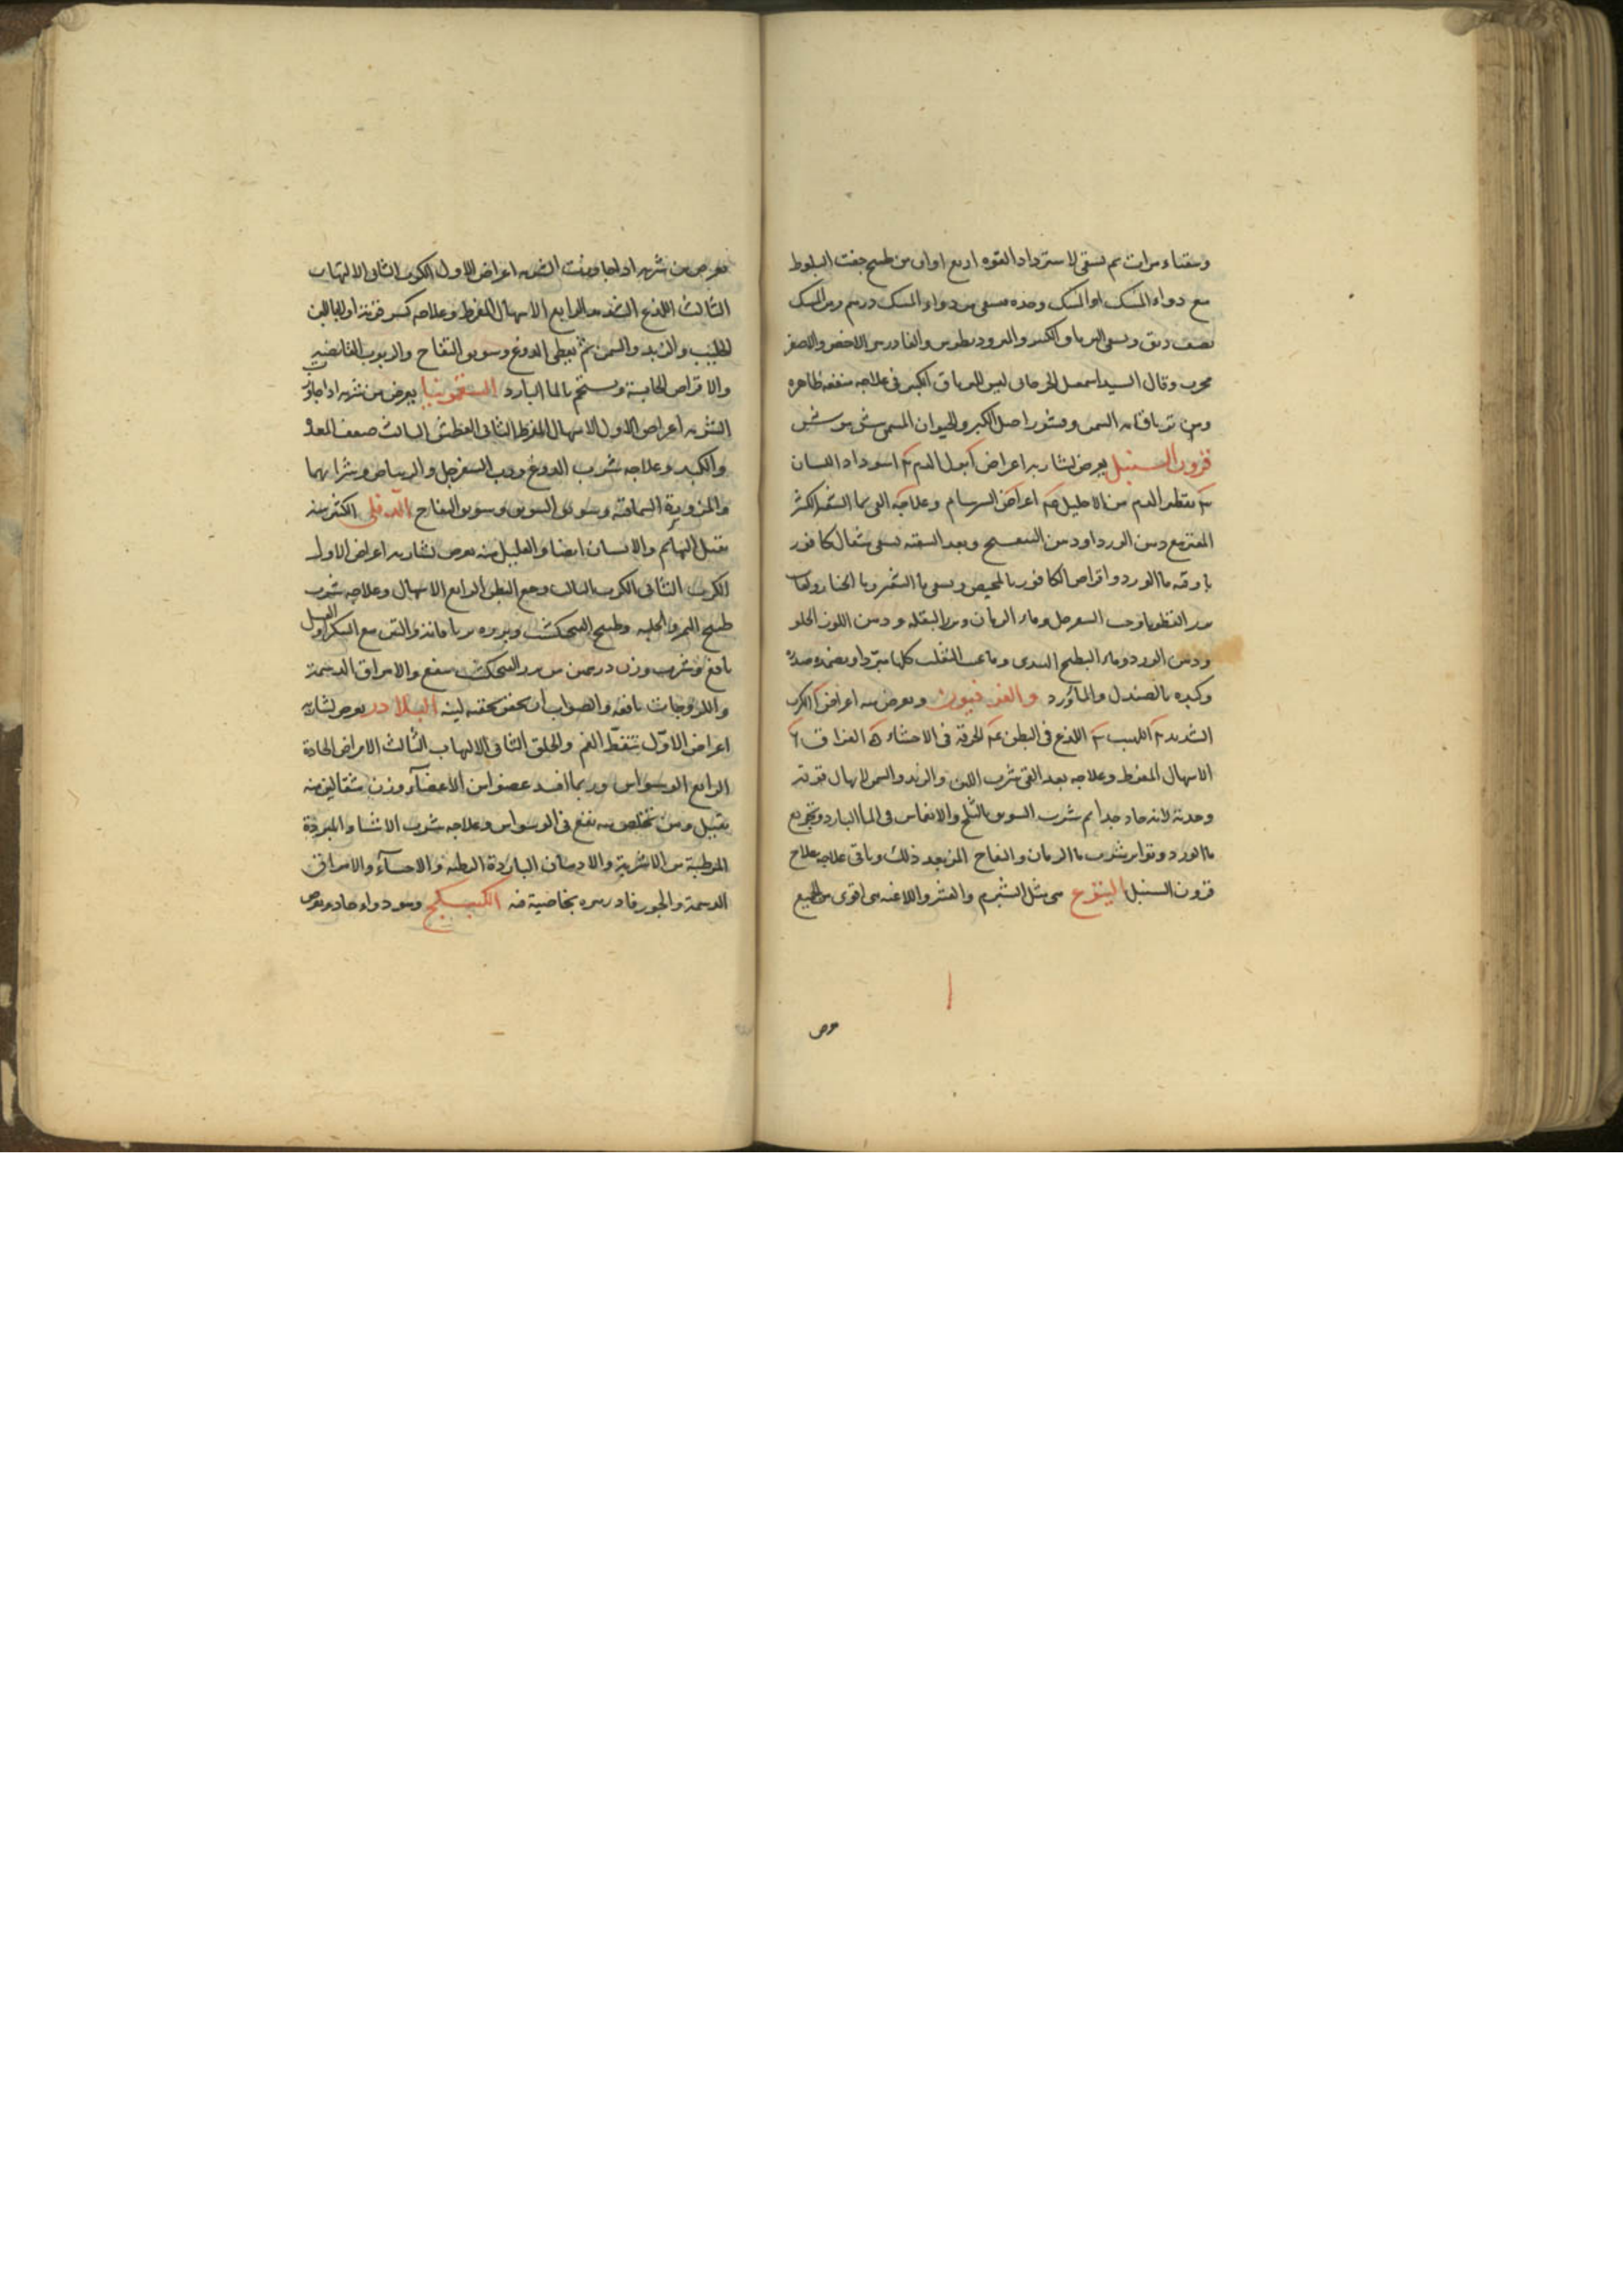 وسقناه مرات ثم يسقى لاسترداد القوه اربع اواق من طبيخ جفت البلوط
مع دواء المسك او المسك وحده فيسقى من دواء المسك درهم ومن المسك
نصف دنق ويسقى الترياق الكبير والمثروديطوس والفادزهر الاخضر والاصفر
مجرب وقال السيد اسمعيل الجرجاني ليس للترياق الكبير في علاجه منفعة ظاهره
ومن ترياقاته السمن وقشور اصل الكبر والحيوان المسمى بيش موش
قرون السنبل يعرض لشاربه اعراض آ بول الدم ٢ اسوداد اللسان
٣ تقطير الدم من الاحليل ٤ اعراض السرسام وعلاجه القي بماء الشعير الكثير
المفتر مع دهن الورد او دهن البنفسج وبعد التنقيه يسقى مثقال كافور
باوقيه ماء الورد واقراص الكافور بالمخيض ويسقى ماء الشعير وماء الخيار ولعاب
بزر القطونا وحب السفرجل وماء الرمان وبزر البقله ودهن اللوز الحلو
ودهن الورد وماء البطيخ الهندي وماء عنب الثعلب كلها مبردا ويضمد صدره
وكبده بالصندل والماورد والفرفيون ويعرض منه اعراض آ الكرب
الشديد ٢ اللهيب ٣ اللذع في البطن ٤ الحرقة في الاحشاء ٥ الفواق ٦
الاسهال المفرط وعلاجه بعد القي شرب اللبن والزبد والسمن لابهال قوته
وحدته لانه حاد جدا ثم شرب السويق بالثلج والانغماس في الماء البارد وتجريع
ماء الورد وتواتر شرب ماء الرمان والتفاح المز بعد ذلك وباقي علاجه علاج
قرون السنبل اليتوع هي مثل الشبرم والعشر واللاغيه هي اقوى من الجميع
يعرض من شربه اذا جاوزت الشربه اعراض الاول الكرب الثاني الالتهاب
الثالث اللذع الشديد الرابع الاسهال المفرط وعلاجه كسر قوته اولا باللبن
الحليب والزبد والسمن ثم يعطى الدوغ وسويق التفاح والربوب القابضه
والاقراص الحابسة ويستحم بالماء البارد السقمونيا يعرض من شربه اذا جاوز
الشربه اعراض الاول الاسهال المفرط الثاني العطش الثالث ضعف المعده
والكبد وعلاجه شرب الدوغ ورب السفرجل والريباس وشرابهما
والمزورة السماقيه وسويق السويق وسويق التفاح الدفلى الكثير منه
يقتل البهائم والانسان ايضا والقليل منه يعرض لشاربه اعراض الاول
الكرب الثاني الكرب الثالث وجع البطن الرابع الاسهال وعلاجه شرب
طبيخ التمر والحلبه وطبيخ الفنجكشت وبزره ترياق منه والتين مع السكر او العسل
نافع وشرب وزن درهمين من بزر الفنجكشت ينفع والامراق الدسمة
واللزوجات نافعه والصواب ان يحقن بحقنه لينه البلادر يعرض لشاربه
اعراض الاول تنفط الفم والحلق الثاني الالتهاب الثالث الامراض الحادة
الرابع الوسواس وربما افسد عضوا من الاعضاء ووزن مثقالين منه
يقتل ومن تخلص منه يقع في الوسواس وعلاجه شرب الاشياء المبردة
المرطبة من الاشربة والادهان الباردة الرطبه والاحساء والامراق
الدسمة والجوز فادزهره بخاصية فيه الكبيكج وهو دواء حاد يعرض